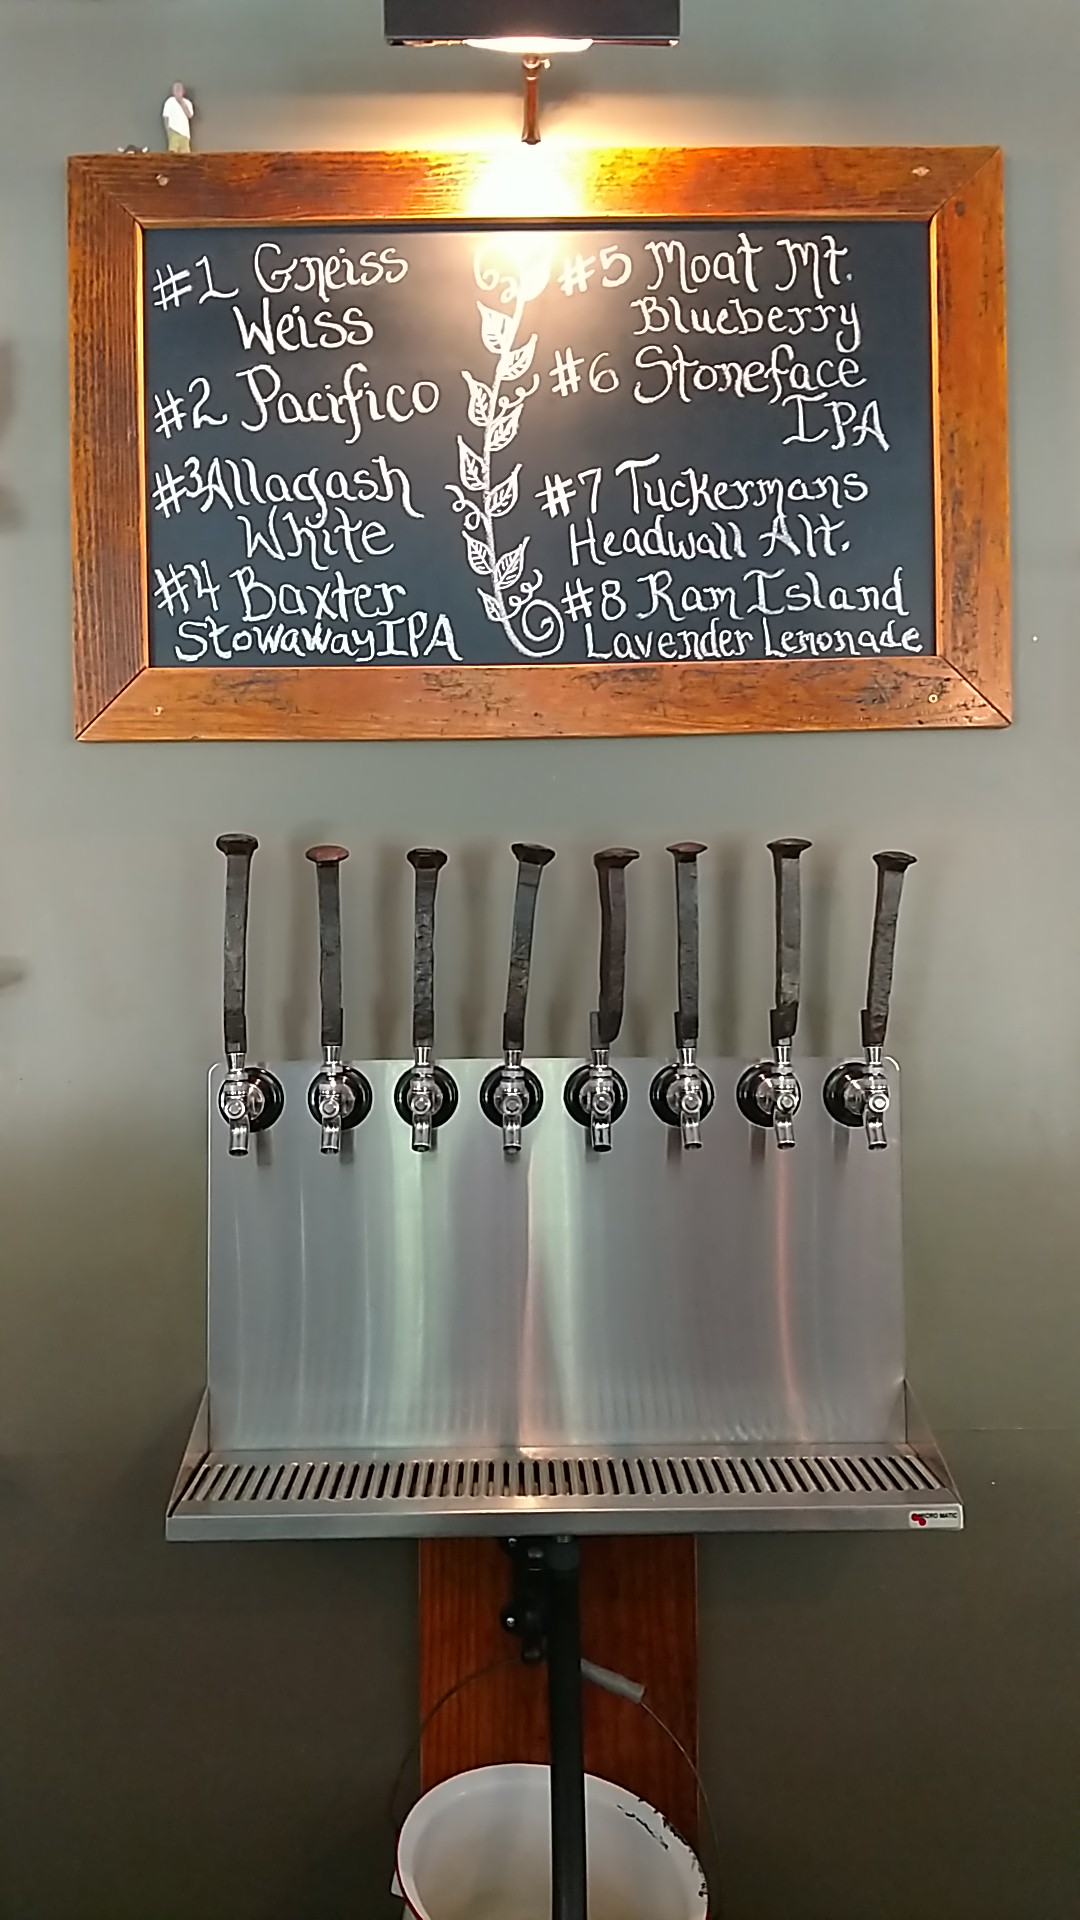 #1 Gneiss
Weiss
#2 Pacifico
#3 Allagash
White
#4 Baxter
Stowaway IPA
#5 Moat Mt.
Blueberry
#6 Stoneface
IPA
#7 Tuckermans
Headwall Alt.
#8 Ram Island
Lavender Lemonade
MICRO MATIC